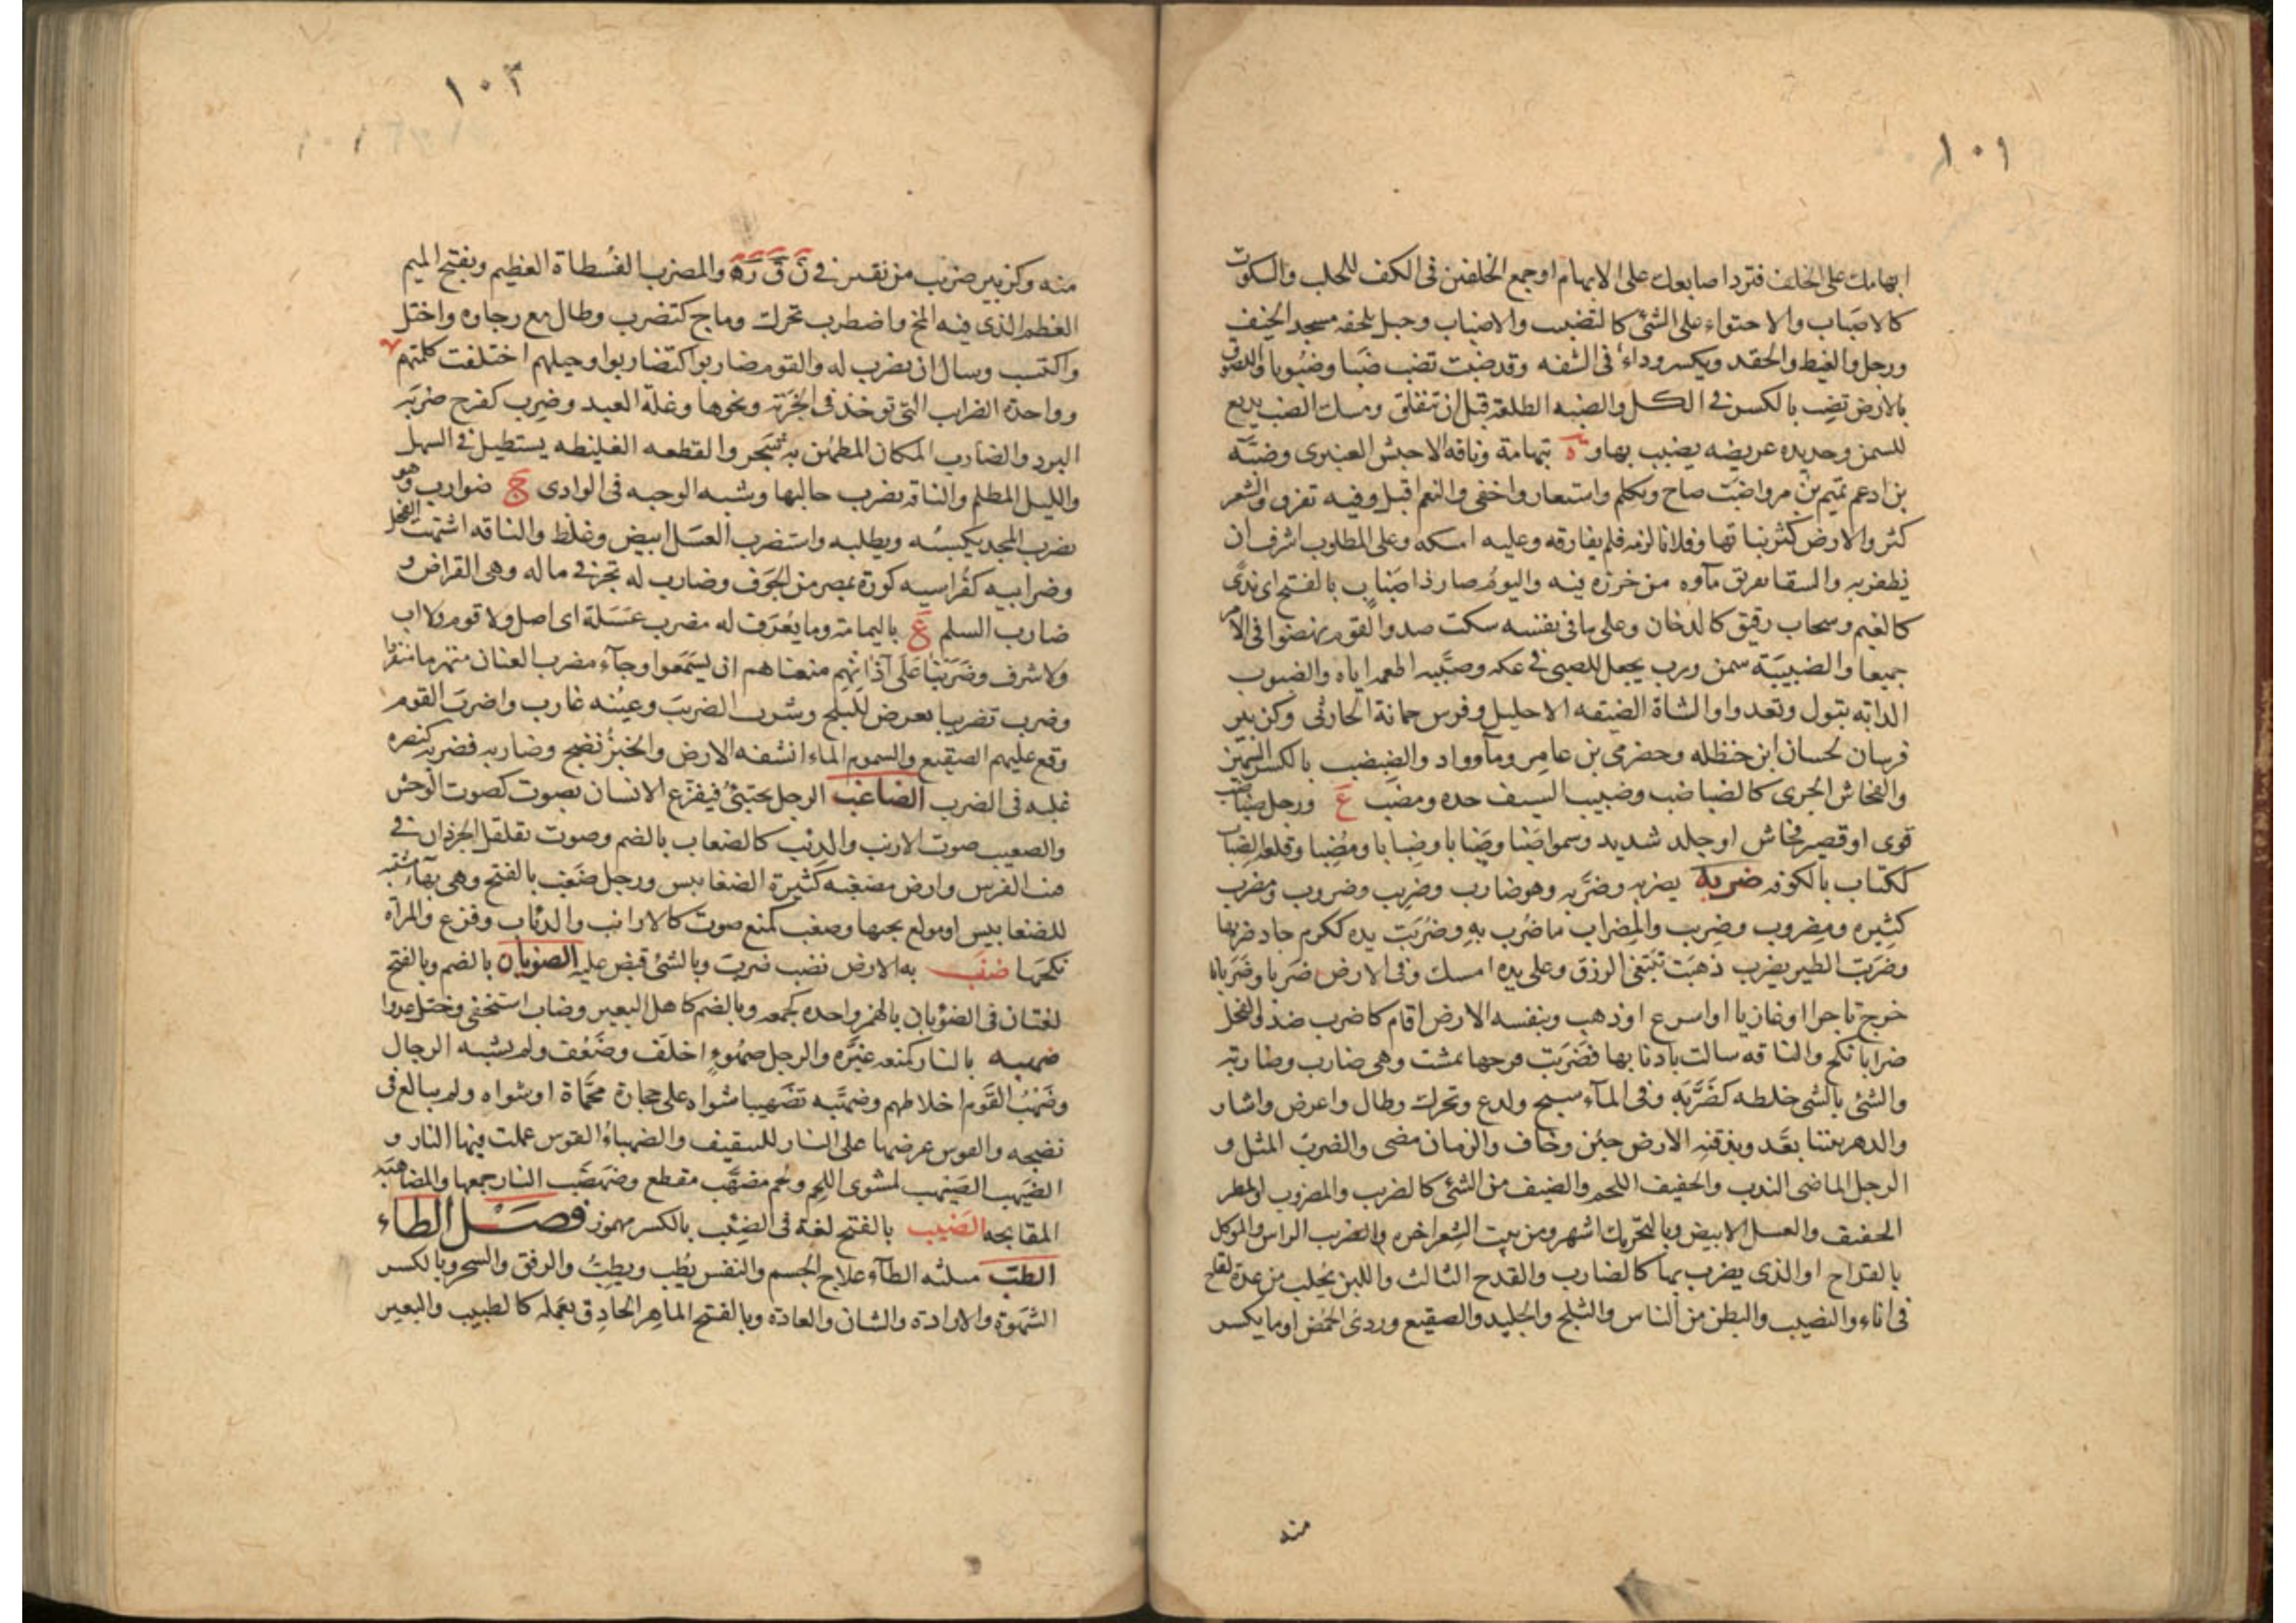 ١٠١
ابهامك على الخلف فترد اصابعك على الابهام او جمع الخلفين فى الكف للحلب والسكوت
كالاضباب والاحتواء على الشئ كالتضبيب والاضباب وجبل بلحفه مسجد الخيف
ورجل والغيط والحقد ويكسر وداء فى الشفه وقد ضبت تضب ضبا وضبوبا واللصوق
بالارض تضب بالكسر فى الكل والضبه الطلعة قبل ان تنفلق ومسك الضب يدبغ
للسمن وحديده عريضه يضبب بها و ة بتهامة وناقه الاحبش العنبرى وضبّه
بن ادعم تميم بن مر واضبّ صاح وتكلم واستعار واخفى والنعم اقبل وفيه تفرق والشعر
كثر والارض كثر نباتها وفلانا لزمه فلم يفارقه وعليه امسكه وعلى المطلوب اشرف ان
يظفر به والسقا هريق مآوه من خرزه فيه واليوم صار ذا ضباب بالفتح اى ندى
كالغيم وسحاب رقيق كالدخان وعلى ما فى نفسه سكت ضد والقوم نهضوا فى الامر
جميعا والضبيبة سمن ورب يجعل للصبى فى عكه وضبّبه اطعمه اياه والضبوب
الدابه تبول وتعدوا والشاة الضيقه الاحليل وفرس جمانة الحارثى وكزبير
فرسان لحسان ابن حنظله وحضرمى بن عامر ومآ وواد والضبضب بالكسر السمين
والفحاش الجرى كالضباضب وضبيب السيف حده ومضب ع ورجل ضباضب
قوى او قصير فحاش او جلد شديد وسموا ضبا وضبابا وضبابا ومضبا وقلعه الضباب
ككتاب بالكوفه ضربه يضربه وضرّبه وهو ضارب وضرِيب وضروب وضرب ومضرب
كثيره ومضروب وضريب والمضراب ما ضرب به وضربت يده ككرم جاد ضربها
وضربت الطير يضرب ذهبت تبتغى الرزق وعلى يده امسك وفى الارض ضربا وضربانا
خرج تاجرا او غازيا او اسرع او ذهب وبنفسه الارض اقام كاضرب ضد والفحل
ضرابا نكح والناقه سالت بادنابها فضربت فرجها فمشت وهى ضارب وضاربه
والشئ بالشى خلطه كضرّبه وفى المآء سبح ولدغ وتحرك وطال واعرض واشار
والدهر بيننا بعّد وبذقنه الارض جبن وخاف والزمان مضى والضرب المثل و
الرجل الماضى الندب والخفيف اللحم والصنف من الشئ كالضرب والمضروب والمطر
الخفيف والعسل الابيض وبالتحريك اشهر ومن بيت الشعر اخره والضرب الراس والموكل
بالقداح او الذى يضرب بها كالضارب والقدح الثالث واللبن يحلب من عدة لقاح
فى اناء والنصيب والبطن من الناس والثلج والجليد والصقيع وردئ الحمض او ما يكسر
منه
١٠٢
منه وكزبير ضريب من نقير فى ن ق ر ه والمضرب الفسطاة العظيم وبفتح الميم
العظم الذى فيه المخ واضطرب تحرك وماج كتضرب وطال مع رجاوه واختل
واكتسب وسال ان يضرب له والقوم ضاربوا كتضاربوا وحبلهم اختلفت كلمتهم
وواحدة الضراب التى توخذ فى الجزية ونحوها وغلة العبد وضرب كفرح ضربه
البرد والضارب المكان المطمئن به شجر والقطعه الغليظه يستطيل فى السهل
والليل المظلم والناقه يضرب حالبها وشبه الوحبه فى الوادى ج ضوارب وهو
يضرب المجد يكسبه ويطلبه واستضرب العسل ابيض وغلظ والناقه اشتهت الفحل
وضرابيه كقراسيه كورة بمصر من الجوف وضارب له تجر فى ماله وهى القراض و
ضارب السلم ع باليمامة وما يعرف له مضرب عسلة اى اصل ولا قوم ولا اب
ولا شرف وضربنا على آذانهم منعناهم ان يسمعوا وجآء مضرب العنان منهزما منفردا
وضرب تضريبا تعرض للثلج وشرب الضريب وعينه غارب واضرب القوم
وقع عليهم الصقيع والسموم الماء انشفه الارض والخبز نضج وضاربه فضربه كنصره
غلبه فى الضرب الضاغب الرجل يختبئ فيفزع الانسان بصوت كصوت الوحش
والضغيب صوت الارنب والذئب كالضغاب بالضم وصوت تقلقل الجرذان فى
قنب الفرس وارض مضغبه كثيرة الضغابيس ورجل ضغب بالفتح وهى بهآء مشتهيه
للضغابيس او مولع بحبها وضغب كمنع صوت كالارانب والذئاب وفزع والمرآه
نكحها ضنب به الارض نضب ضربت وبالشئ قبض عليه الضوبان بالضم وبالفتح
لغتان فى الضؤبان بالهمز واحده كجمعه وبالضم كاهل البعير وضاب استخفى وختل عدوا
ضهبه بالنار كمنعه غيّره والرجل ضهوبا اخلف وضعف ولم يشبه الرجال
وضهب القوم اخلاطهم وضهّبه تضهيبا شواه على حجارة محمّاة او شواه ولم يبالغ فى
نضجه والقوس عرضها على النار للتثقيف والضهباء القوس عملت فيها النار و
الضيهب الصيهب لمشوى اللحم ولحم مضهّب مقطع وضهضب النار جمعها والمضاهبة
المقابحه الضيب بالفتح لغة فى الضئب بالكسر مهموز فصل الطاء
الطبّ مثلثه الطآء علاج الجسم والنفس يطب ويطب والرفق والسحر وبالكسر
الشهوة والارادة والشان والعادة وبالفتح الماهر الحاذق بعمله كالطبيب والبعير